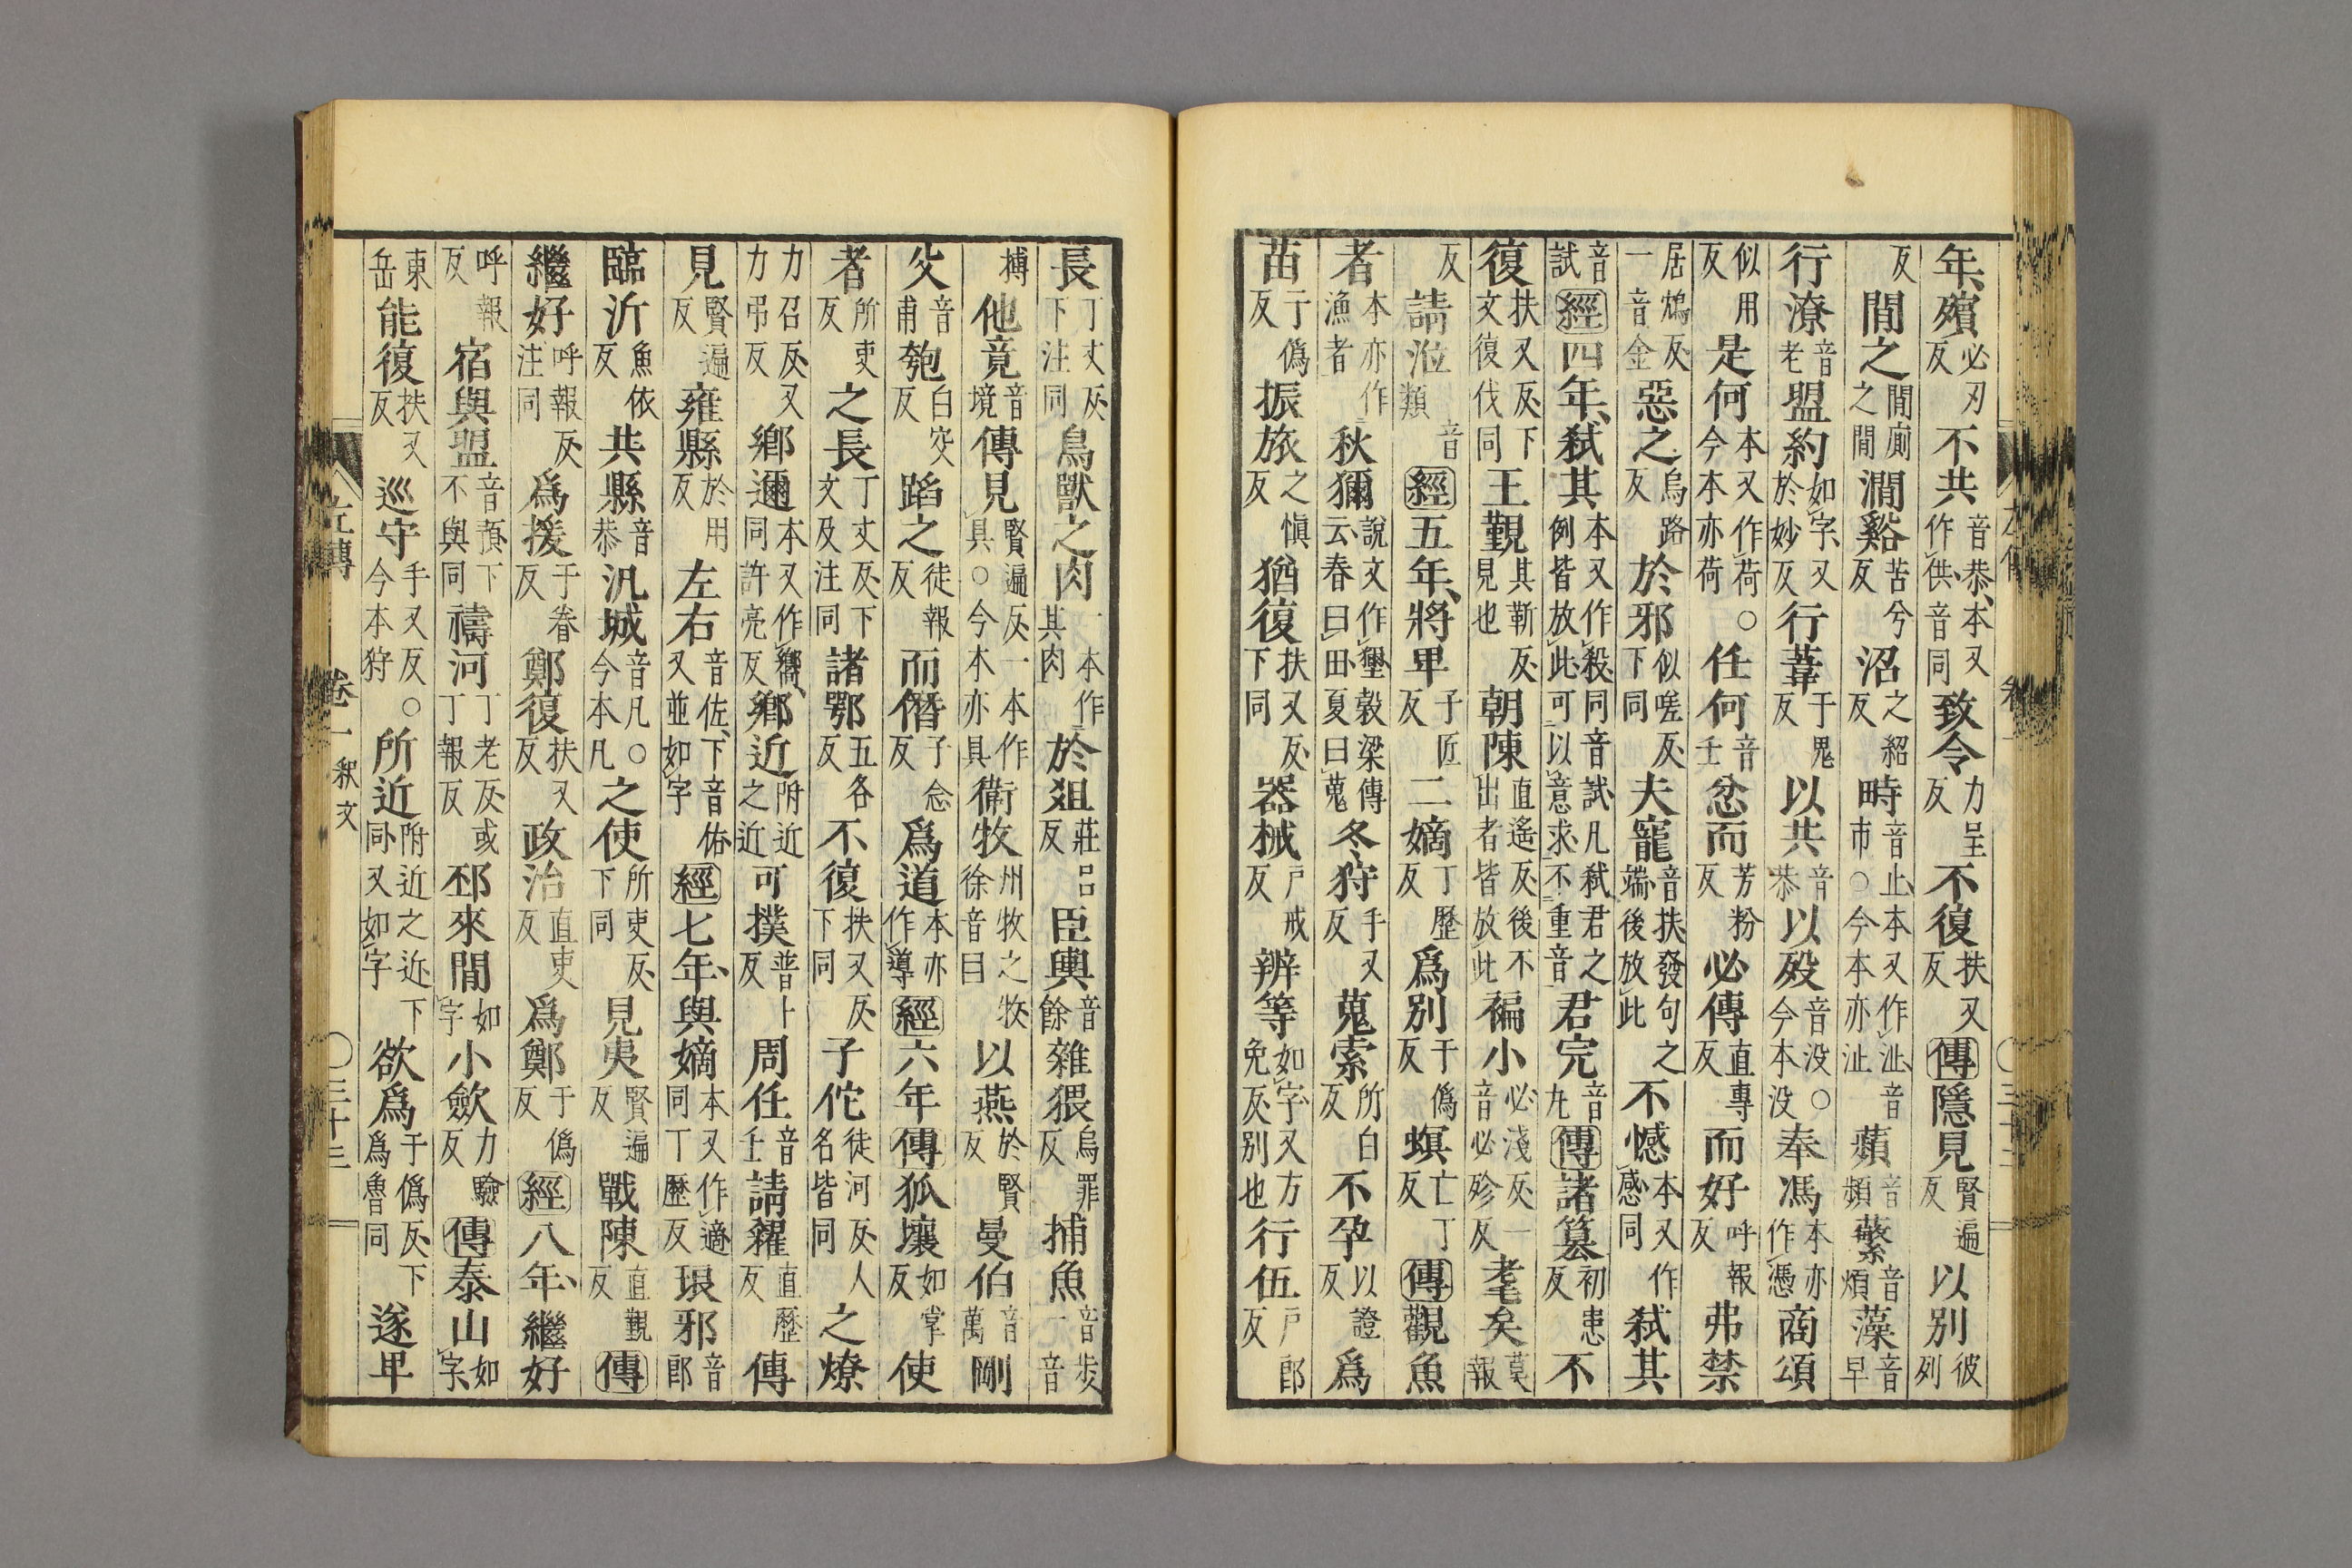 年、殯必刃反不共音恭、本又作供、音同致令力呈反不復扶又反傳隱見賢遍反以別彼列
反間之間廁之間澗谿苦兮反沼之紹反時音止、本又作沚、音市○今本亦沚蘋音頻蘩音煩藻音早
行潦音老盟約如字、又於妙反行葦于鬼反以共音恭以歿音沒○今本沒奉馮本亦作憑商頌
似用反是何本又作荷○今本亦荷任何音壬忿而芳粉反必傳直專反而好呼報反弗禁
居鴆反、一音金惡之烏路反於邪似嗟反、下同夫寵音扶發句之端、後放此不憾本又作感、同弒其
音試經四年、弒其本又作殺同音試、凡弒君之例皆放此、可以意求、不重音君完音丸傳諸篡初患反不
復扶又反、下文復伐同王覲其靳反、見也朝陳直遙反、後不出者皆放此褊小必淺反、一音必殄反耄矣莫報
反請涖音類經五年、將卑子匠反二嫡丁歷反爲別于僞反螟亡丁反傳觀魚
者本亦作漁者秋獮說文作𤣔穀梁傳云、春曰田、夏曰蒐冬狩手又反蒐索所白反不孕以證反爲
苗于僞反振旅之愼反猶復扶又反、下同器械戶戒反辨等如字、又方免反、別也行伍戶郎反
長丁丈反、下注同鳥獸之肉一本作其肉於俎莊呂反臣輿音餘雜猥烏罪反捕魚音步、一音
搏他竟音境傳見賢遍反、一本作具○今本亦具衞牧州牧之牧、徐音目以燕於賢反曼伯音萬剛
父音甫匏白交反蹈之徒報反而僭子念反爲道本亦作導經六年傳狐壤如掌反使
者所吏反之長丁丈反、下文及注同諸鄂五各反不復扶又反、下同子佗徒河反、人名皆同之燎
力召反、又力弔反鄉邇本又作嚮、同許亮反鄉近附近之近可撲普卜反周任音壬請糴直歷反傳
見賢遍反雍縣於用反左右音佐、下音佑、又並如字經七年、與嫡本又作適、同丁歷反琅邪音郎
臨沂魚依反共縣音恭汎城音凡○今本凡之使所吏反、下同見夷賢遍反戰陳直覲反傳
繼好呼報反、注同爲援于眷反鄭復扶又反政治直吏反爲鄭于僞反經八年、繼好
呼報反宿與盟音預、下不與同禱河丁老反、或丁報反邳來間如字小斂力驗反傳泰山如字、
東岳能復扶又反巡守手又反○今本狩所近附近之近、下同、又如字欲爲于僞反、下爲魯同遂卑
左傳 卷一 釈文 ○三十三